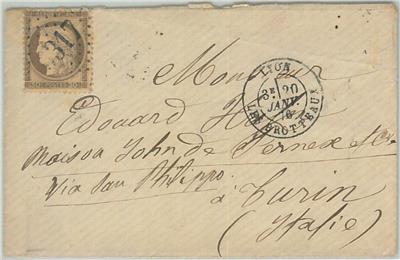 317
30c POSTES 30c
LYON
3E 20
JANV.
76
LES BROTTEAUX
Monsieur
Edouard
Maison John de Fernex & Cie
Via San Philippo
à Turin
(Italie)